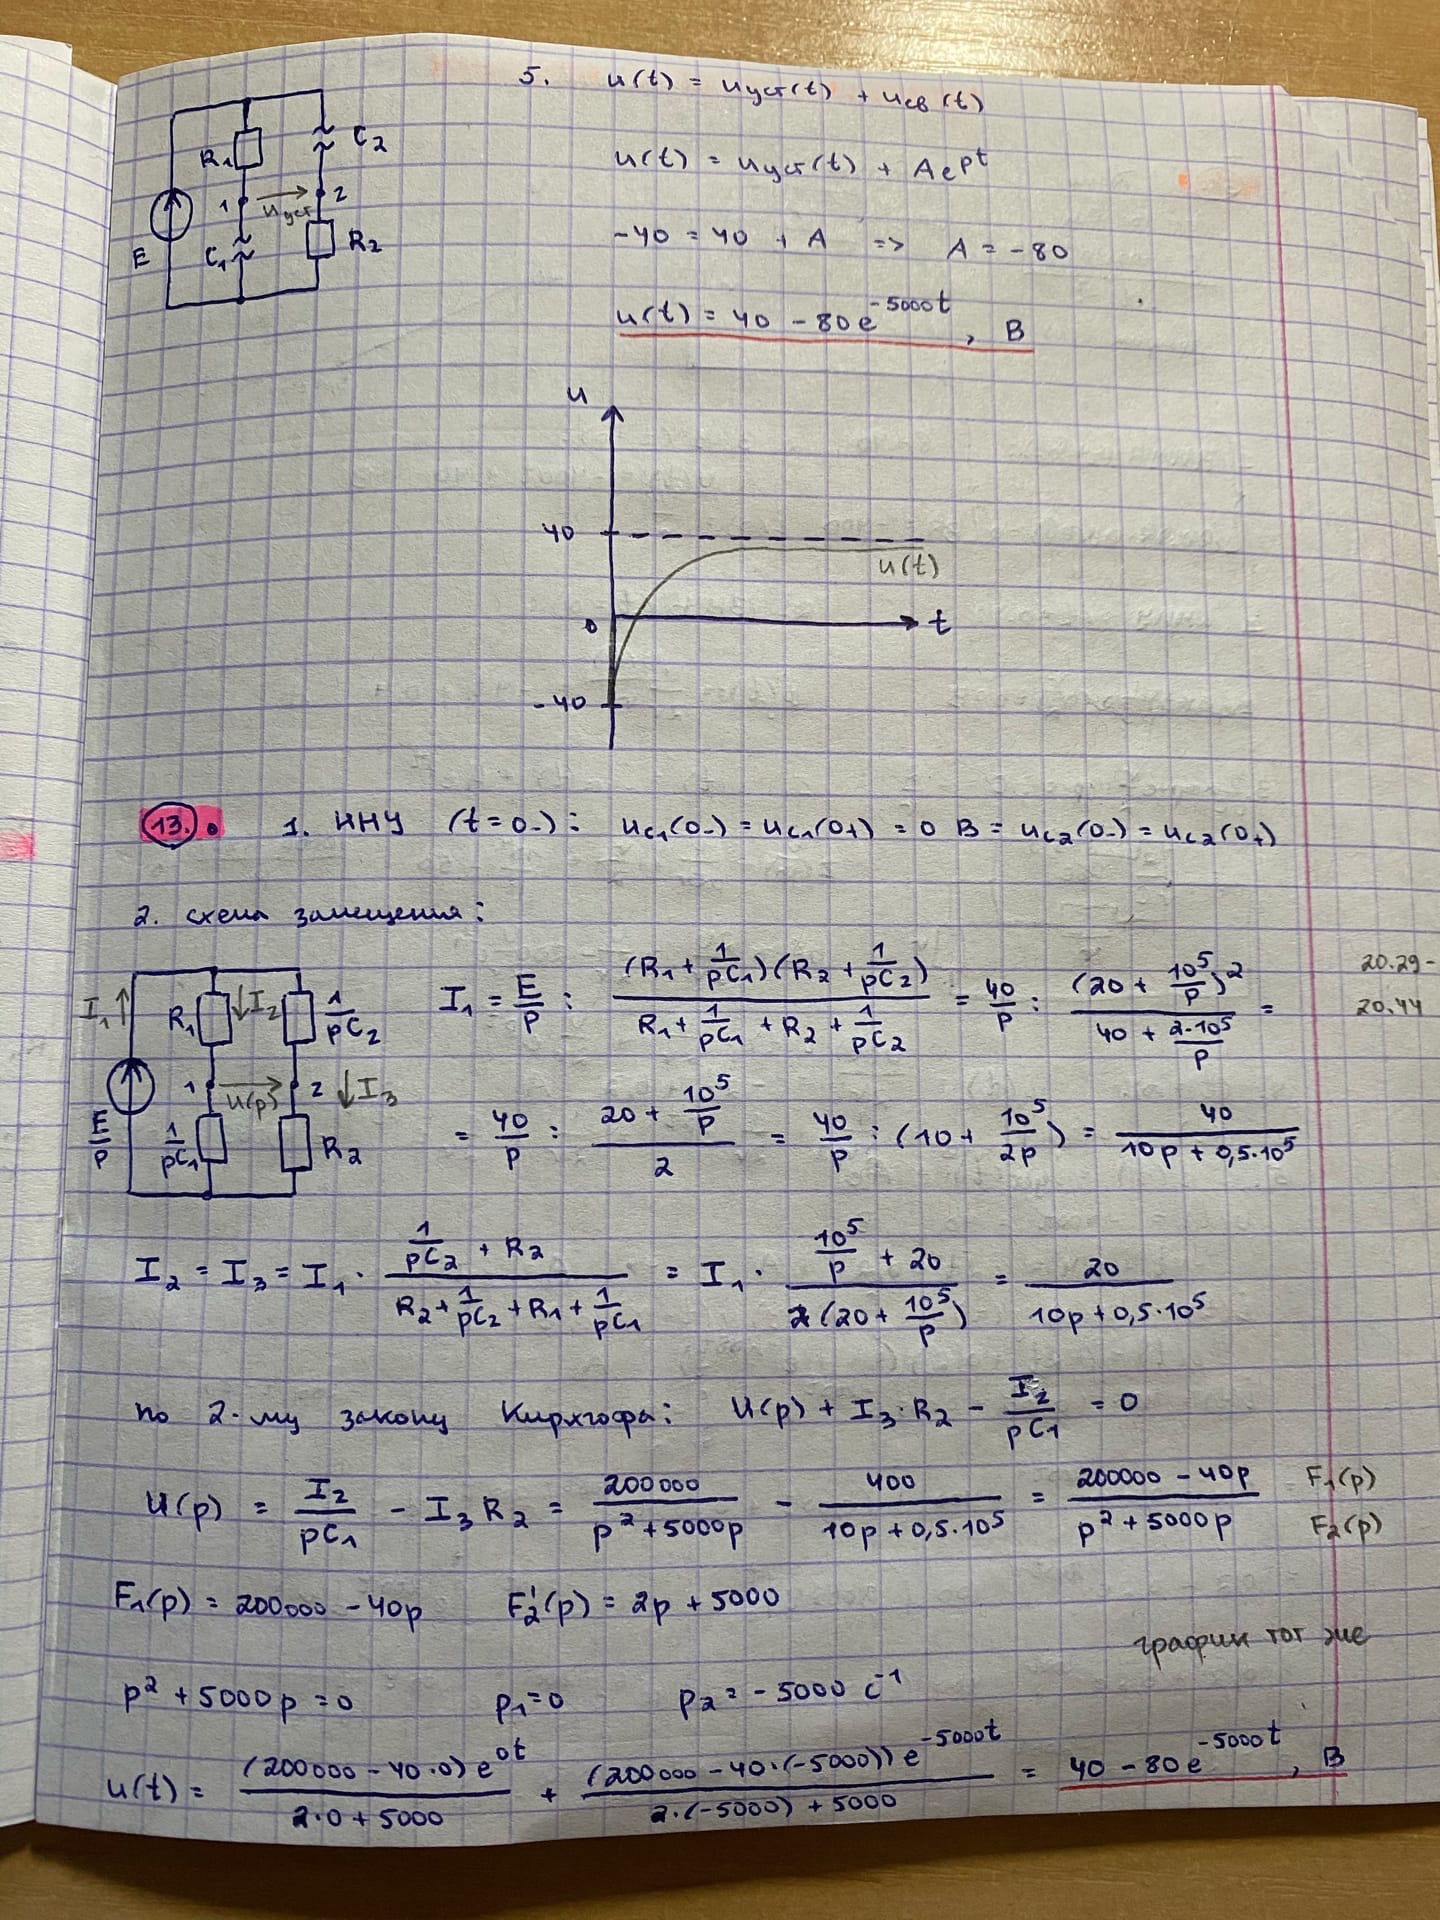 5. u(t) = uуст(t) + uсв(t)
u(t) = uуст(t) + Ae^pt
-40 = 40 + A => A = -80
u(t) = 40 - 80e^-5000t, В
R₁ C₂
1 uуст 2
E C₁ R₂
u
40
u(t)
0 t
-40
13. 1. ННУ (t=0-): uc₁(0-) = uc₁(0+) = 0 В = uc₂(0-) = uc₂(0+)
2. схема замещения:
I₁ R₁ I₂ 1/pC₂
1 U(p) 2 I₃
E/p 1/pC₁ R₂
I₁ = E/p : (R₁ + 1/pC₁)(R₂ + 1/pC₂) / (R₁ + 1/pC₁ + R₂ + 1/pC₂) = 40/p : (20 + 10⁵/p)² / (40 + 2·10⁵/p) =
20.29-
20.44
= 40/p : (20 + 10⁵/p) / 2 = 40/p : (10 + 10⁵/2p) = 40 / (10p + 0,5·10⁵)
I₂ = I₃ = I₁ · (1/pC₂ + R₂) / (R₂ + 1/pC₂ + R₁ + 1/pC₁) = I₁ · (10⁵/p + 20) / 2(20 + 10⁵/p) = 20 / (10p + 0,5·10⁵)
по 2-му закону Кирхгофа: U(p) + I₃·R₂ - I₂/pC₁ = 0
U(p) = I₂/pC₁ - I₃R₂ = 200000 / (p² + 5000p) - 400 / (10p + 0,5·10⁵) = (200000 - 40p) / (p² + 5000p) F₁(p) / F₂(p)
F₁(p) = 200000 - 40p F₂'(p) = 2p + 5000
график тот же
p² + 5000p = 0 p₁ = 0 p₂ = -5000 с⁻¹
u(t) = (200000 - 40·0)e^0t / (2·0 + 5000) + (200000 - 40·(-5000))e^-5000t / (2·(-5000) + 5000) = 40 - 80e^-5000t, В